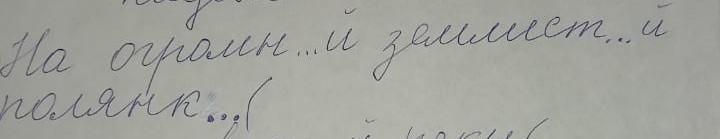 На огромн...й землист...й
полянк...(